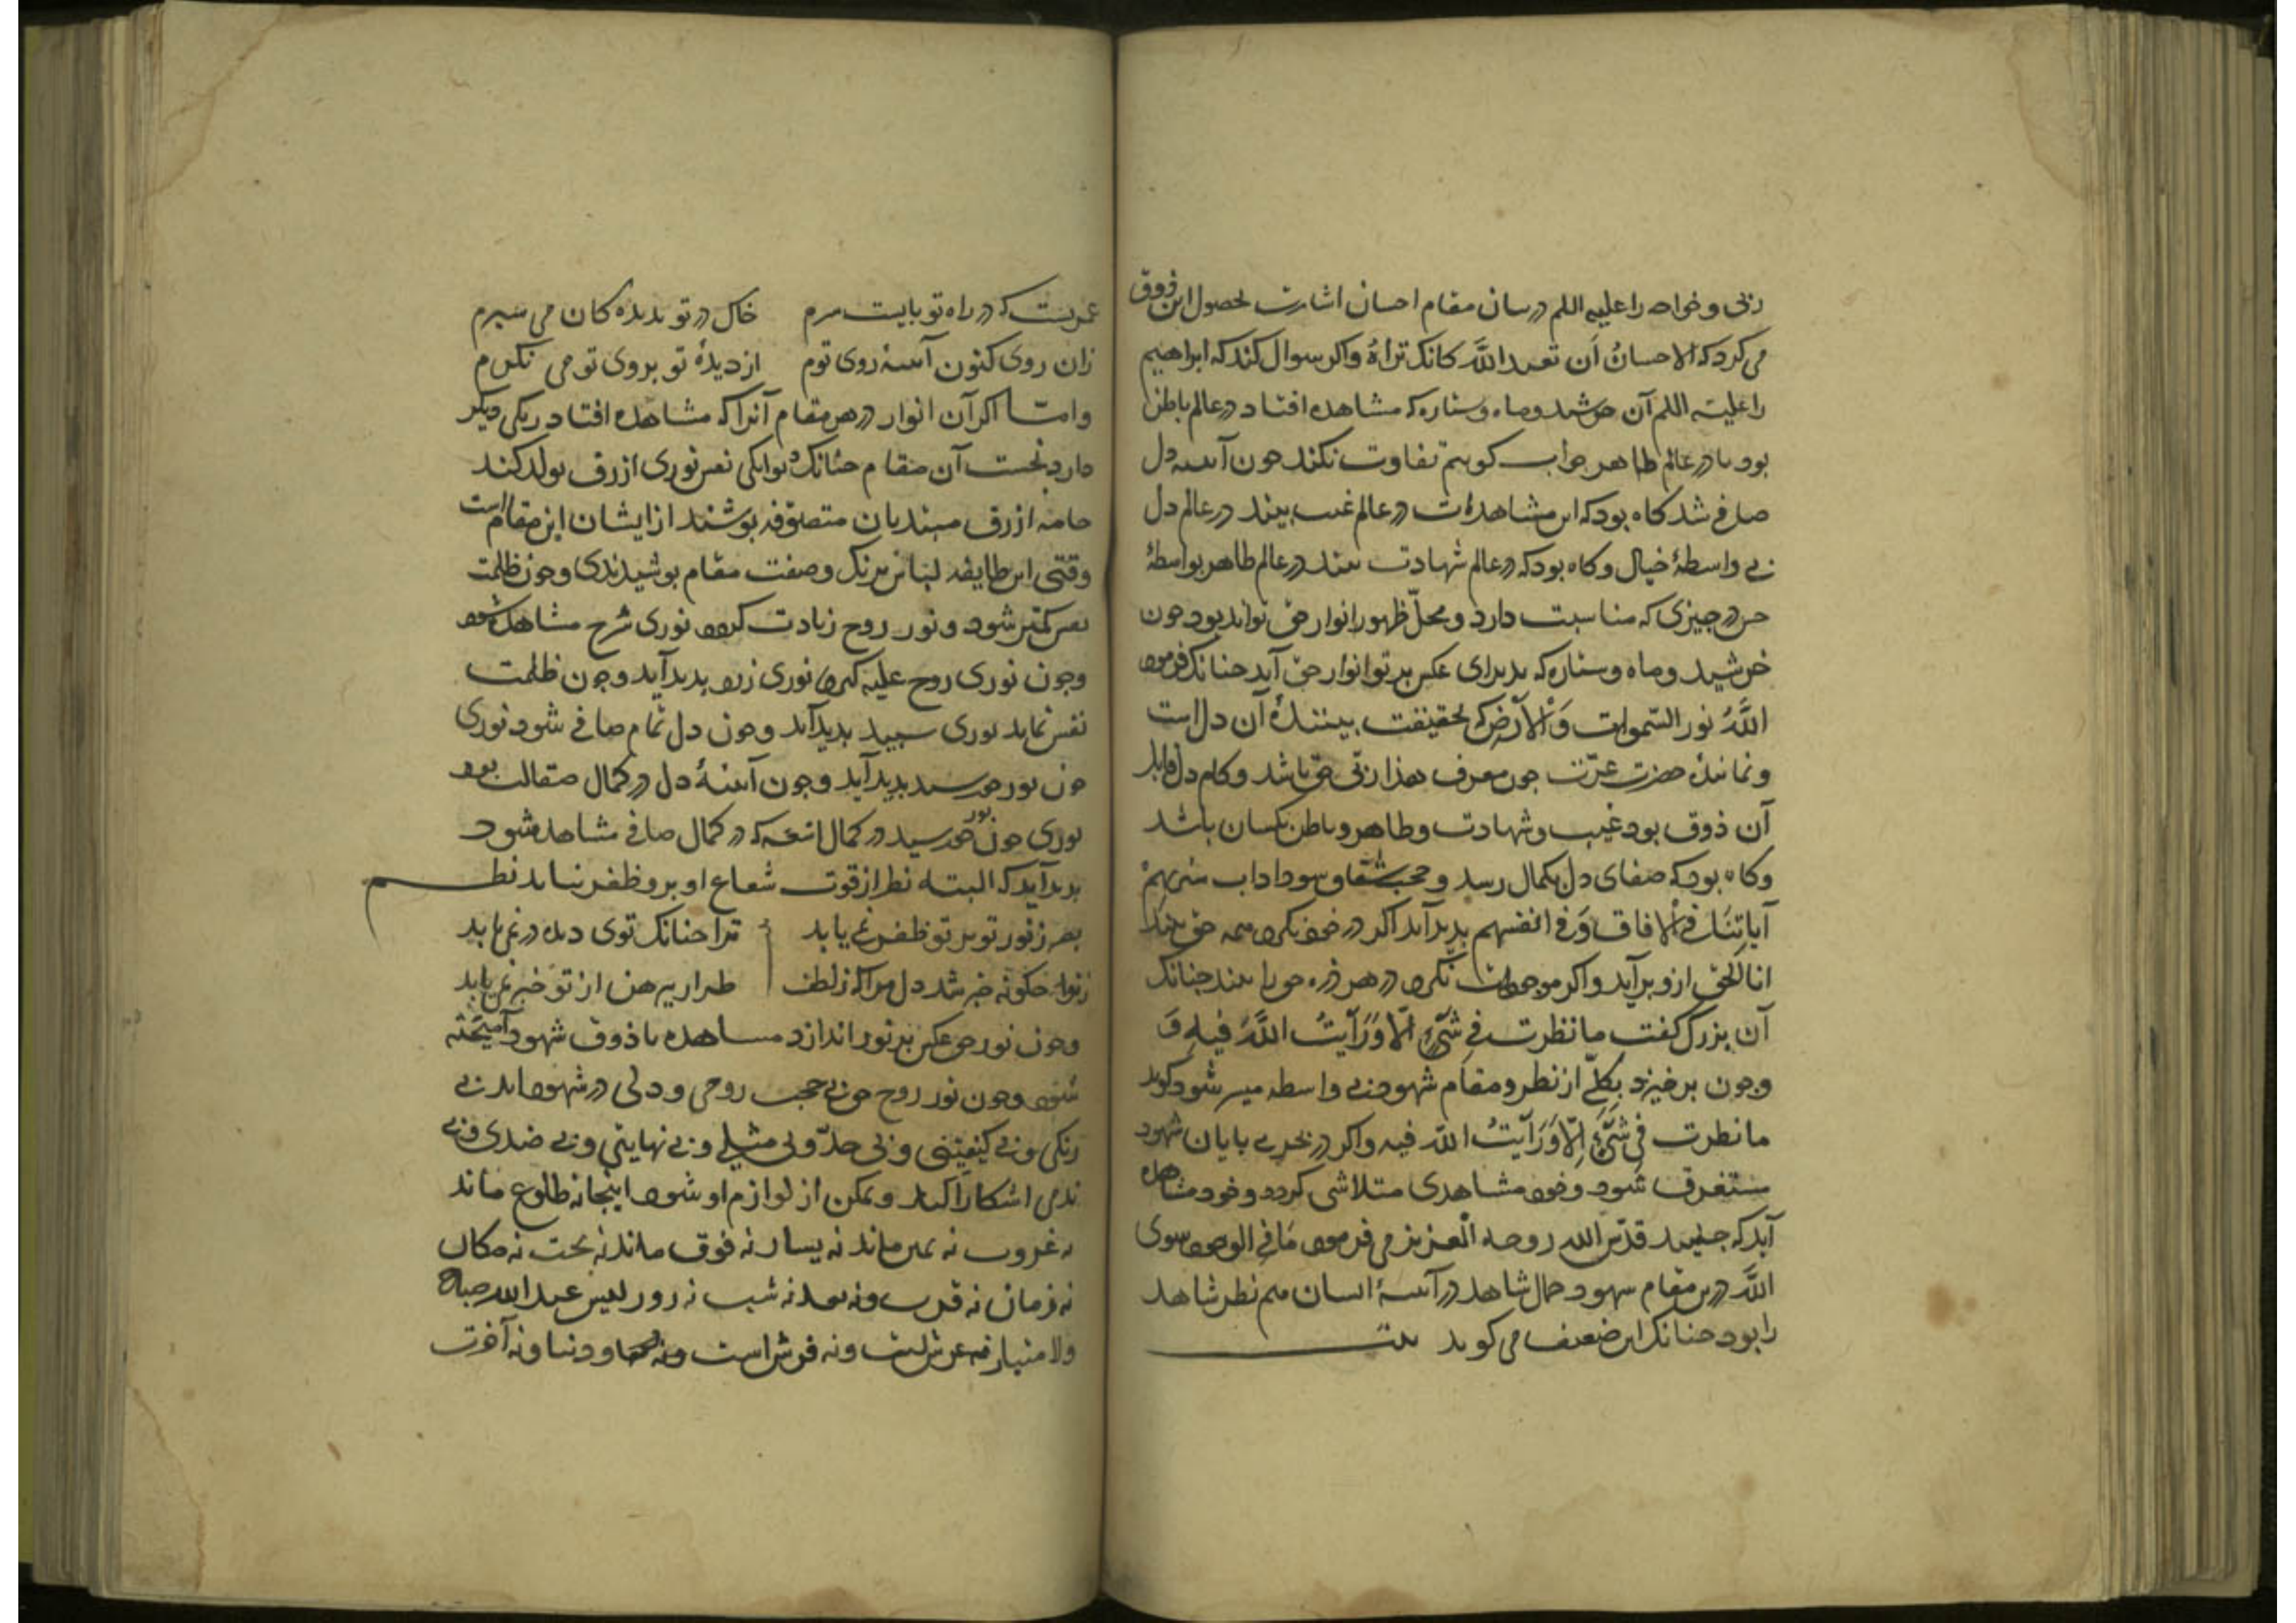 ربی و خواجه را علیه اللم در بیان مقام احسان اشارت بحصول این ذوق
می کرد که الاحسانُ اَن تعبد اللهَ کانک تراهُ و اکر سوال کند که ابراهیم
را علیه اللم آن خرشید و ماه و ستاره که مشاهده افتاد در عالم باطن
بود یا در عالم ظاهر جواب کویم تفاوت نکند جون آینه دل
صافی شد کاه بود که این مشاهدات در عالم غیب بیند در عالم دل
بی واسطهٔ خیال و کاه بود که در عالم شهادت بیند در عالم ظاهر بواسطهٔ
حس در جیزی که مناسبت دارد و محلّ ظهور انوار حق تواند بود جون
خرشید و ماه و ستاره که پذیرای عکس پرتو انوار حق آید جنانک فرمود
اللهُ نور السّموات وَالْاَرْض که بحقیقت بینندهٔ آن دل است
و نمایندهٔ حضرت عزّت جون معرف هذا ربّی حق باشد و کام دل قابل
آن ذوق بود غیب و شهادت و ظاهر و باطن یکسان باشد
و کاه بود که صفای دل بکمال رسد و حجب شفاف سود اداب سنریهمْ
آیاتِنَا فی الْافاق وَفی انفسهم بدید آید اکر در خود نکرد همه حق بیند
انا الحق ازو برآید و اکر موجودات نکرد در هر ذره حق را بیند جنانک
آن بزرک کفت ما نظرت فی شَیْءٍ اِلّا وَرَایتُ اللّهَ فیهِ وَ
وجون برخیزد بکلّی از نظر و مقام شهود بی واسطه میسر شود کوید
ما نظرت فی شَیْءٍ اِلّا وَرَاَیتُ اللّه فیه و اکر در بحر بی پایان شهود
مستغرق شود و خود مشاهدی متلاشی کردد و خود مشاهده
آید که جنید قدّس الله روحه الْعزیز می فرمود مَا فی الوجود سوی
اللّهَ درین مقام شهود جمال شاهد در آینهٔ انسان هم نظر شاهد
را بود جنانک این ضعیف می کوید بیت
عمریست که در راه تو پایست سرم خاک در تو بدیده کان می سپرم
زان روی کنون آینهٔ روی توم از دیدهٔ تو بروی تو می نکرم
وامّا اکر آن انوار در هر مقام آنرا که مشاهده افتاد رنکی دیکر
دارد نخست آن مقام جنانک در لوامکی نفس نوری ازرق تولد کند
جامه ازرق مبتدیان متصوّفه بوشند از ایشان این مقام است
وقتی این طایفه لباس برنک و صفت مقام بوشیدندی و جون ظلمت
نفس کمتر شود و نور روح زیادت کردد نوری سرخ مشاهده شود
وجون نوری روح غلبه کیرد نوری زرد بدید آید وجون ظلمت
نفس نماید نوری سبید بدید آید وجون دل تمام صافی شود نوری
جون نور خورسید بدید آید وجون آینهٔ دل در کمال صقالت بود
نوری جون نور خورسید در کمال اشعه که در کمال صافی مشاهده شود
بدید آید که البته نظر از قوت شعاع او برو ظفر نیابد نظم
بصر ز نور تو بر تو ظفر نمی یابد ترا جنانک توی دیده در نمی یابد
ز تو جکونه خبر شد دل مرا که ز لطف طرار پیرهن از تو خبر نمی یابد
وجون نور حق عکس بر نور اندازد مشاهده با ذوق شهود آمیخته
شود وجون نور روح حق بی حجب روحی و دلی در شهود اید بی
رنکی و بی کیفیتی و بی حدّی و بی مثلی و بی نهایتی و بی ضدی و بی
ندی اشکارا کند و تمکن از لوازم او شود اینجا نه طلوع ماند
نه غروب نه یمین ماند نه یسار نه فوق ماند نه تحت نه مکان
نه زمان نه قرب و نه بعد نه شب نه روز لیس عند الله صباح
ولا مساء نه عرش است و نه فرش است و نه دنیا و نه آخرت